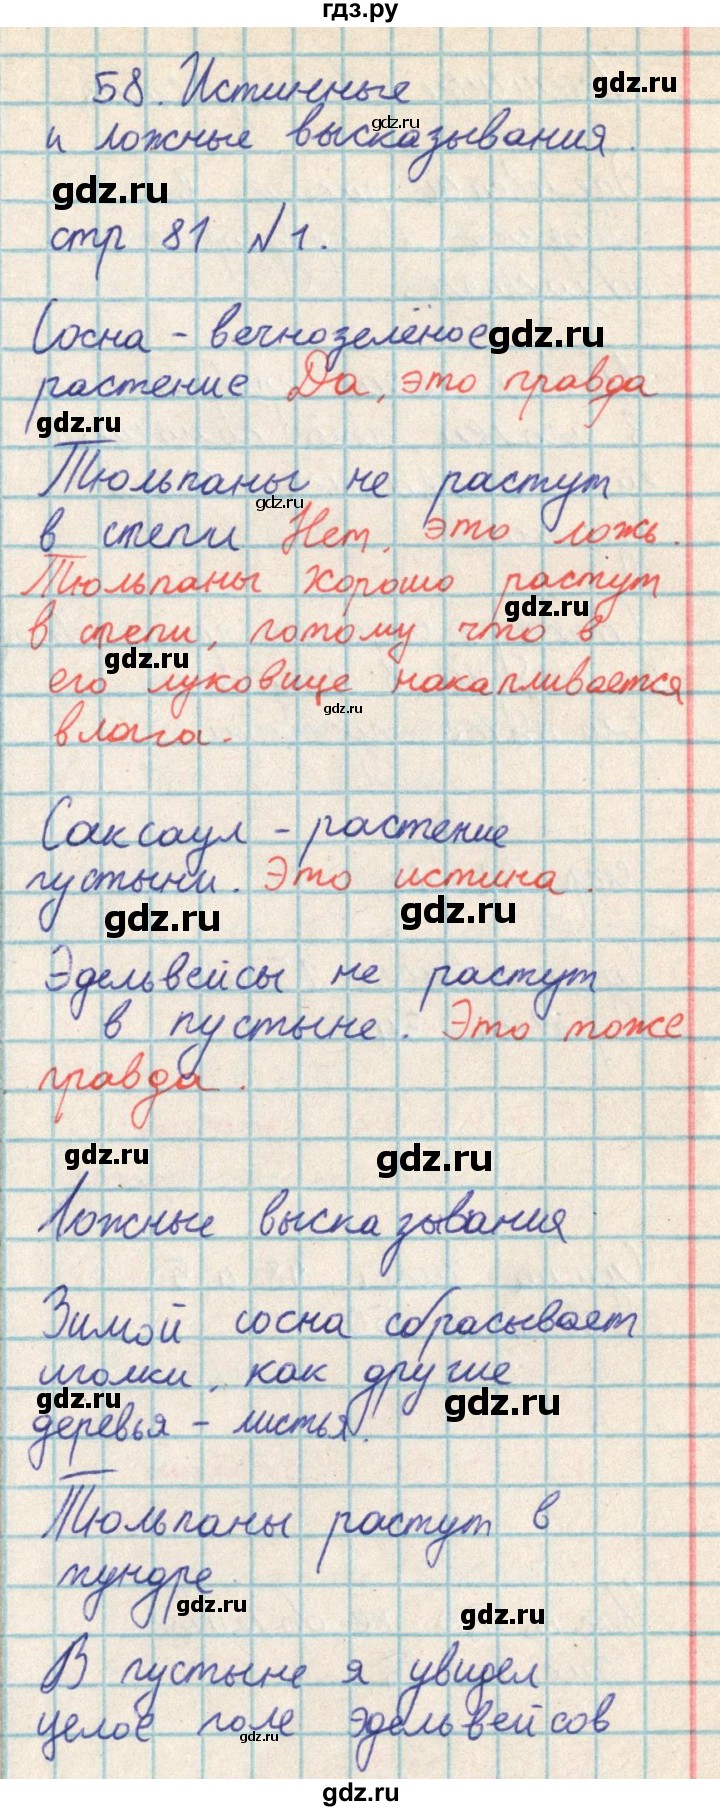 гдз.ру
58. Истинные
gdz.ru
gdz.ru
и ложные высказывания.
gdz.ru
стр 81 №1.
Сосна - вечнозелёное
gdz.ru
растение Да, это правда
gdz.ru
Тюльпаны не растут
gdz.ru
в степи Нет, это ложь.
Тюльпаны хорошо растут
gdz.ru
в степи, потому что в
gdz.ru
его луковице накапливается
gdz.ru
влага.
Саксаул - растение
пустыни. Это истина.
gdz.ru
gdz.ru
Эдельвейсы не растут
в пустыне. Это тоже
правда.
gdz.ru
gdz.ru
Ложные высказывания
Зимой сосна сбрасывает
иголки, как другие
gdz.ru
gdz.ru
деревья - листья.
Тюльпаны растут в
тундре.
gdz.ru
gdz.ru
В пустыне я увидел
целое поле эдельвейсов
gdz.ru
gdz.ru